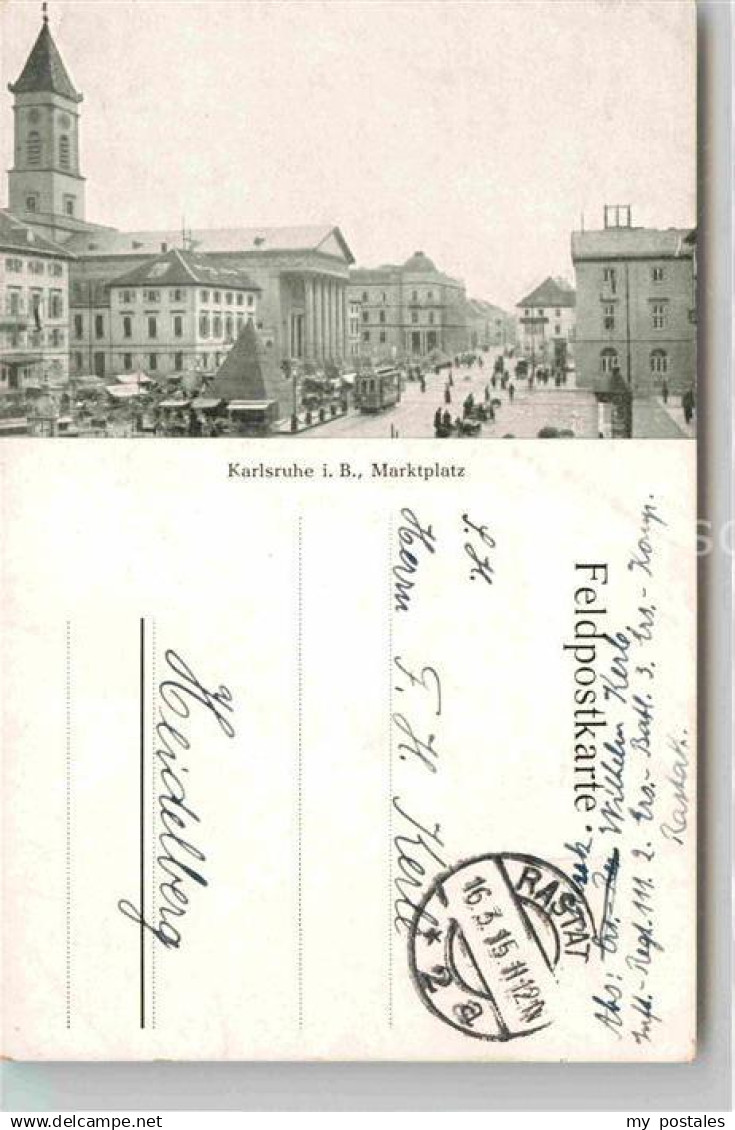 Karlsruhe i. B., Marktplatz
Feldpostkarte.
S. H.
Herrn F. H. Kerle
Heidelberg
RASTATT
16.3.15.11-12V.
* 2a
Abs: Ers. Rek
Wilhelm Kerle,
Inft.-Regt. 111. 2. Ers.-Batl. 3. Ers.-Komp.
Rastatt.
my postales